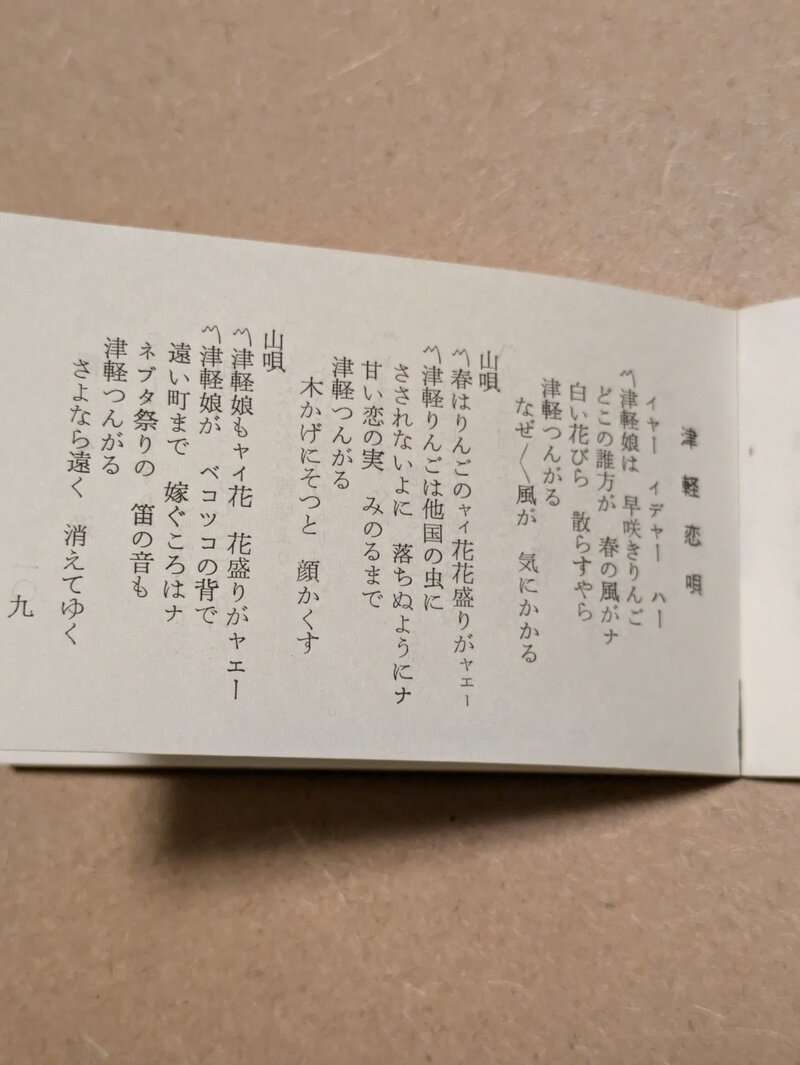 津軽恋唄
ィヤー　ィデャー　ハー
〽津軽娘は　早咲きりんご
どこの誰方が　春の風がナ
白い花びら　散らすやら
津軽つんがる
なぜ〳〵風が　気にかかる
山唄
〽春はりんごのャィ花花盛りがャェー
〽津軽りんごは他国の虫に
さされないよに　落ちぬようにナ
甘い恋の実　みのるまで
津軽つんがる
木かげにそっと　顔かくす
山唄
〽津軽娘もャイ花　花盛りがャエー
〽津軽娘が　ベコッコの背で
遠い町まで　嫁ぐころはナ
ネブタ祭りの　笛の音も
津軽つんがる
さよなら遠く　消えてゆく
九